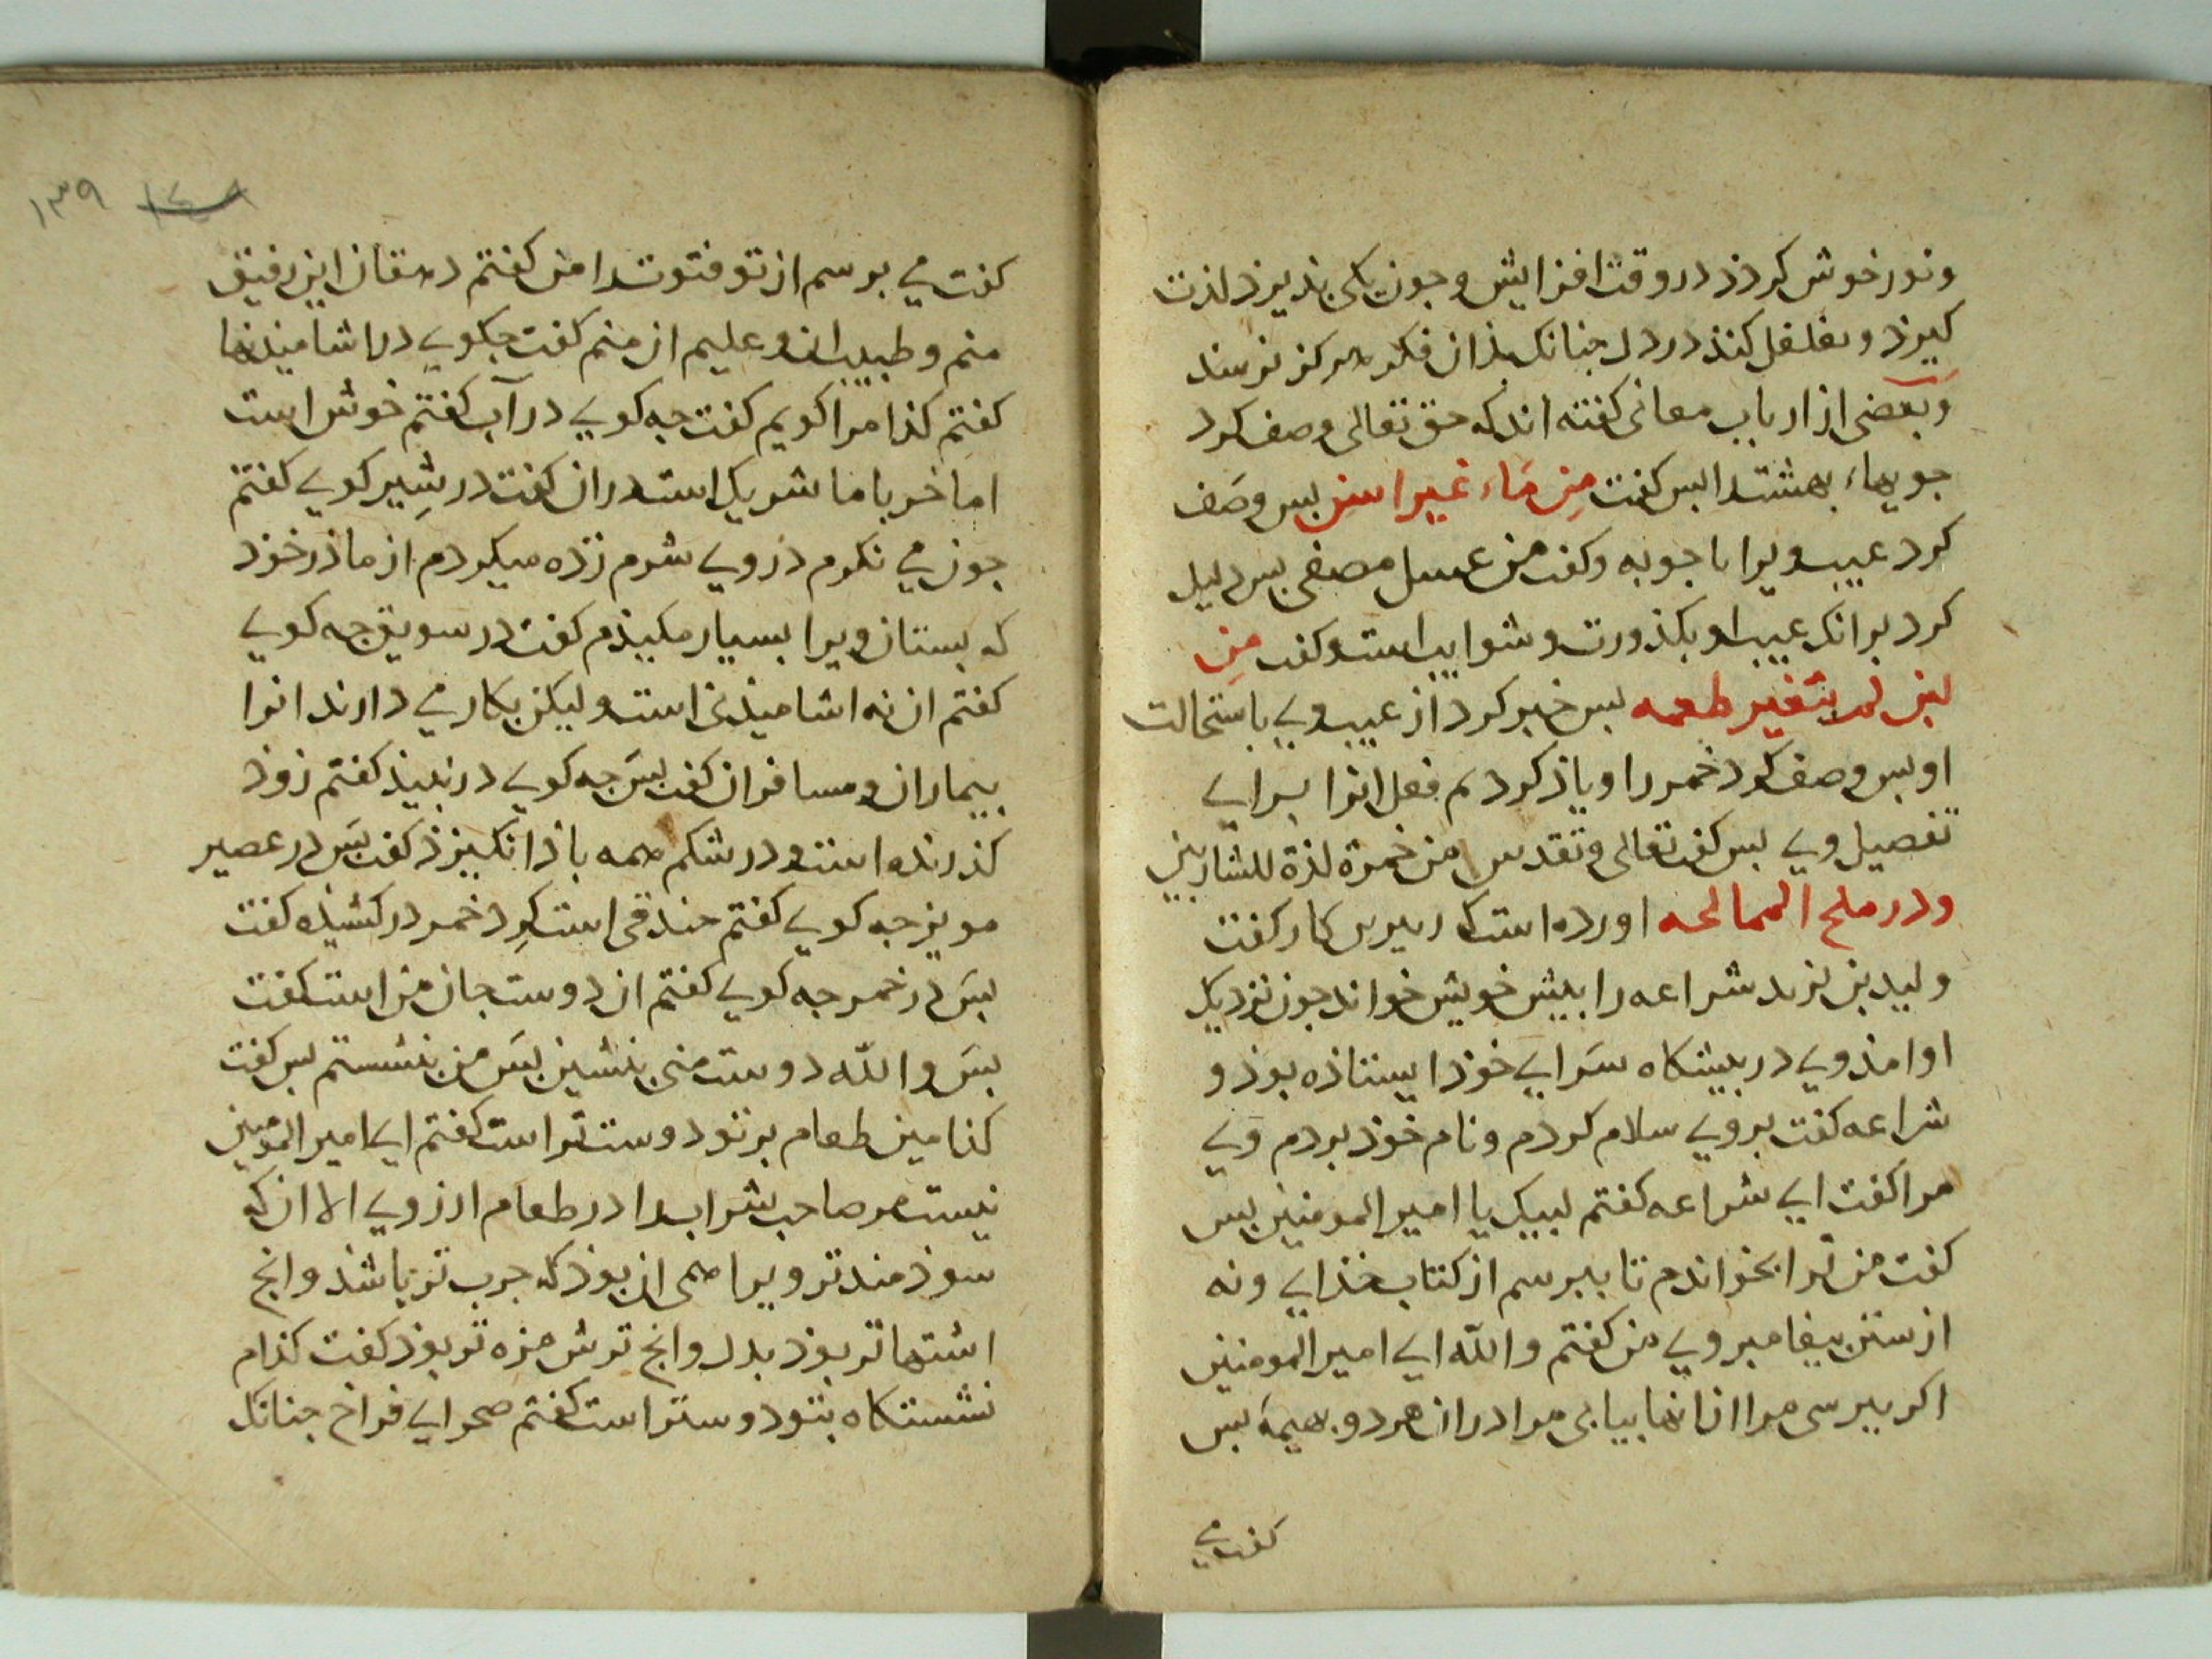 ونور خوش کردذ در وقت افزایش وجون بکی بذیرد لذت
کیرذ و کنذ در دل جنانک بذان فکر هرکز نرسند
وبعضی از ارباب معانی کفته اند که حق تعالی وصف کرد
جویهاء بهشت را بس کفت مِن مَاء غیر اسن بس وصَف
کرد عیب ویرا باجوبه وکفت من عسل مصفی بس دلیل
کرد برانک عیب او بکذورت وشوایب است وکفت مِن
لبن لم یتغیر طعمه بس خبر کرد از عیب وی باستحالت
او بس وصف کرد خمر را ویاذ کرد م فعل انرا برای
تفصیل وی بس کفت تعالی وتقدس من خمرة لذة للشاربین
ودر ملح الممالحه اورده است که بکار کفت
ولید بن یزید شراعه را ببیش خویش خواند جون نزدیک
او امذ وی در بیشکاه سَرای خوذ ایستاذه بوذ و
شراعه کفت بروی سلام کردم ونام خوذ بردم وَی
مرا کفت ای شراعه کفتم لبیک یا امیر المومنین بس
کفت من ترا بخواندم تا ببرسم از کتاب خذای ونه
از سنن بیغامبر وی من کفتم والله ای امیر المومنین
اکر ببرسی مرا ازانها بیابی مرا دران هر دو بهیمه بس
کفت می
١٣٩
کفت می برسم از تو فتوت را من کفتم دهقان این رفیق
منم وطبیب ان وعلیم ان منم کفت جکوی در اشامیدنها
کفتم کذامرا کویم کفت جه کوی در آب کفتم خوش است
اما خر با ما شریک است دران کفت در شِیر کوی کفتم
جون می نکرم دروی شرم زذه میکردم از ماذر خوذ
که بستان ویرا بسیار مکیذم کفت در سویق جه کوی
کفتم ان نه اشامیذنی است ولیکن بکار می دارند انرا
بیماران ومسافران کفت بَس جه کوی در نبیذ کفتم زوذ
کذرنده است ودر شکم همه باذ انکیزذ کفت بَس در عصیر
مویز جه کوی کفتم است کِرد خمر در کشیذه کفت
بسَ در خمر جه کوی کفتم ان دوست جان من است کفت
بسَ والله دوست منی بنشین بسَ من بنشستم بس کفت
کذامین طعام بر تو دوست تراست کفتم ای امیر المومنین
نیست مر صاحب شراب را در طعام ارزوی الا ان که
سوذمند تر ویرا همی ان بوذ که جرب تر باشذ وانج
اشتها تر بوذ بدل وانج ترش مزه تر بوذ کفت کذام
نشستکاه بتو دوستراست کفتم صحرای فراخ جنانک